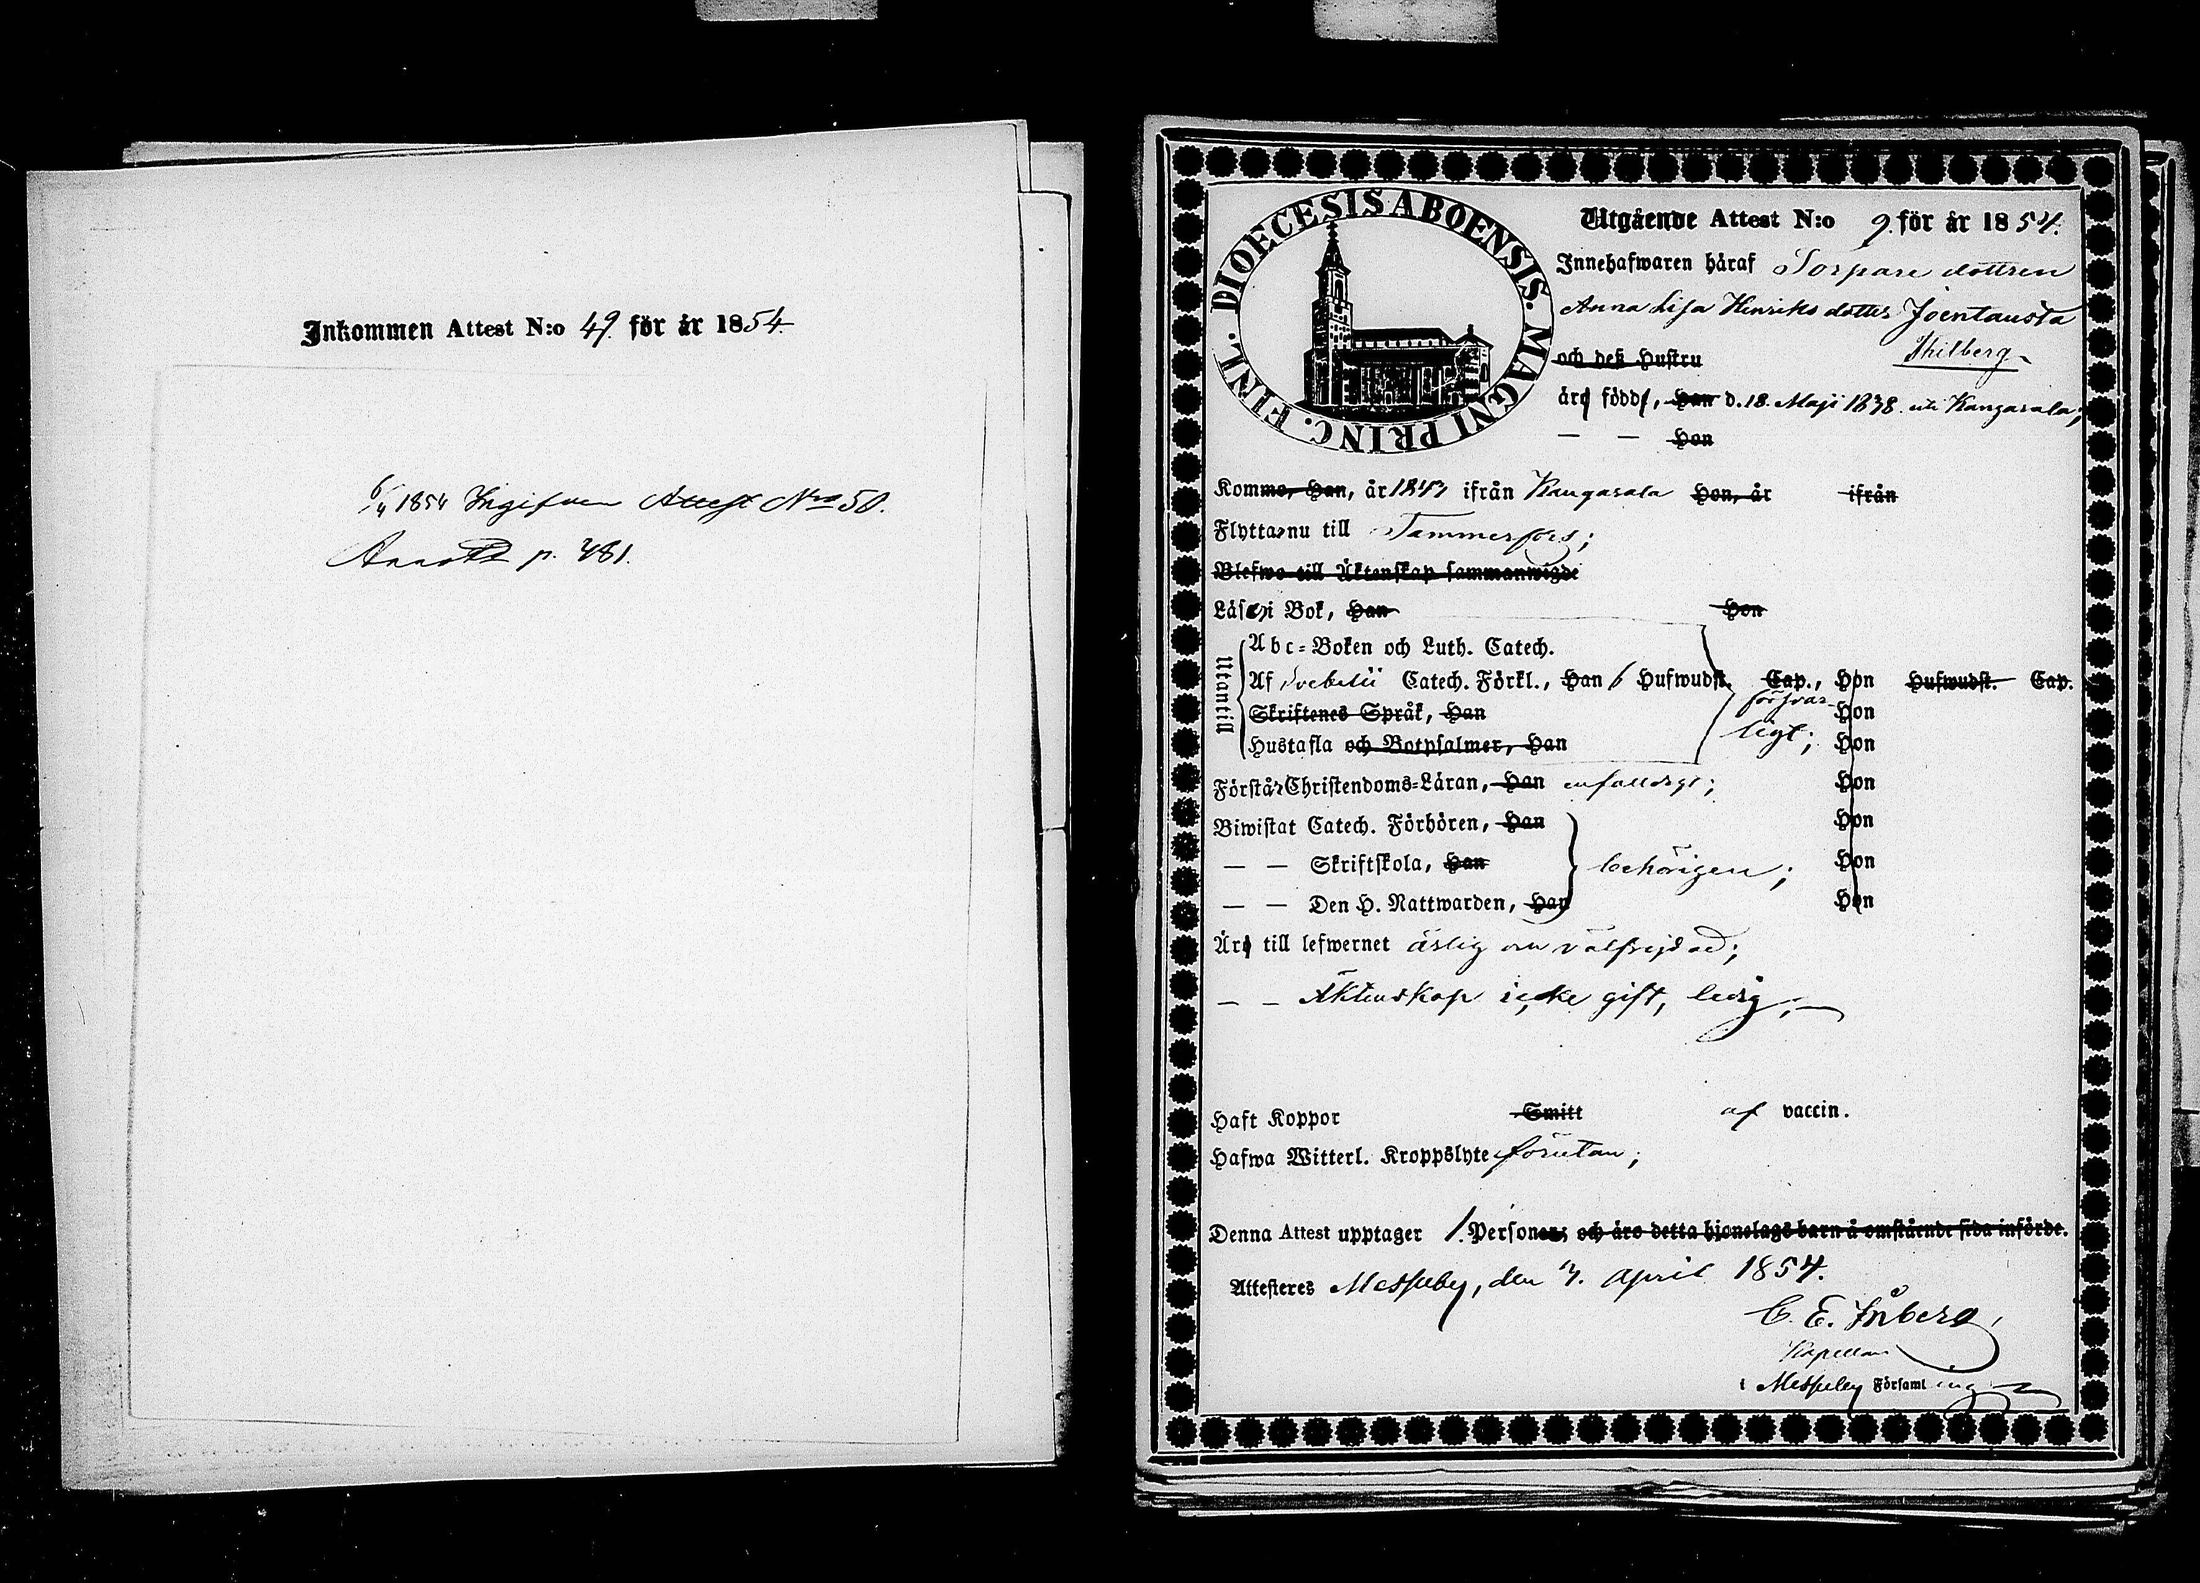 Inkommen Attest N:o 49. för år 1854.
6/4 1854 Ingifven Attest Nro 50.
p. 481.
DIOECESIS ABOENSIS. MAGNI PRINC. FINL.
Utgående Attest N:o 9. för år 1854.
Innehafwaren häraf Torpare dottren
Anna Lisa Henriks dotter Joentausta
och deß Hustru Thilberg
äro född, Han d. 18. Maji 1838. uti Kangasala;
— — Hon
Komme, Han, år 1847 ifrån Kangasala Hon, år ifrån
Flyttar nu till Tammerfors;
Blefwo till Äktenskap sammanwigde
Läser i Bok, Han Hon
Utantill
Abc-Boken och Luth. Catech.
Af Svebelii Catech. Förkl., Han 6 Hufwudst. Cap., Hon Hufwudst. Cap.
Skriftenes Språk, Han försvar- Hon
Hustafla och Botpsalmer, Han ligt; Hon
Förstår Christendoms-Läran, Han enfalldigt; Hon
Biwistat Catech. Förhören, Han Hon
— — Skriftskola, Han behörigen; Hon
— — Den H. Nattwarden, Han Hon
Äro till lefwernet ärlig och välfrejdad;
— — Äktenskap icke gift, ledig;
Haft Koppor Smitt af vaccin.
Hafwa Witterl. Kroppslyte förutan;
Denna Attest upptager 1. Personer; och äro detta hjonelags barn å omstående sida införde.
Attesteres Messuby, den 3. April 1854.
C. E.
Kapellan
i Messuby Församling